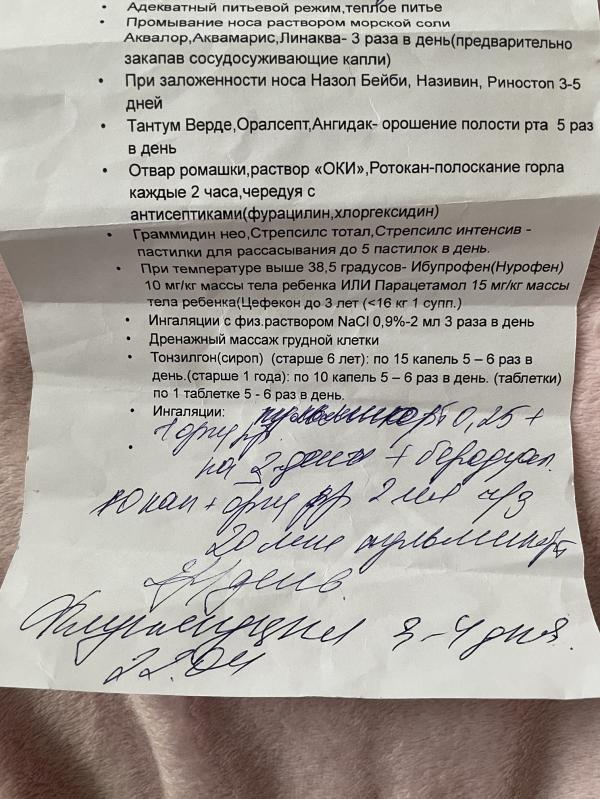 Адекватный питьевой режим,теплое питье
Промывание носа раствором морской соли
Аквалор,Аквамарис,Линаква- 3 раза в день(предварительно
закапав сосудосуживающие капли)
При заложенности носа Назол Бейби, Називин, Риностоп 3-5
дней
Тантум Верде,Оралсепт,Ангидак- орошение полости рта 5 раз
в день
Отвар ромашки,раствор «ОКИ»,Ротокан-полоскание горла
каждые 2 часа,чередуя с
антисептиками(фурацилин,хлоргексидин)
Граммидин нео,Стрепсилс тотал,Стрепсилс интенсив -
пастилки для рассасывания до 5 пастилок в день.
При температуре выше 38,5 градусов- Ибупрофен(Нурофен)
10 мг/кг массы тела ребенка ИЛИ Парацетамол 15 мг/кг массы
тела ребенка(Цефекон до 3 лет (<16 кг 1 супп.)
Ингаляции с физ.раствором NaCl 0,9%-2 мл 3 раза в день
Дренажный массаж грудной клетки
Тонзилгон(сироп) (старше 6 лет): по 15 капель 5 – 6 раз в
день.(старше 1 года): по 10 капель 5 – 6 раз в день. (таблетки)
по 1 таблетке 5 - 6 раз в день.
Ингаляции: пульмикорт 0,25 +
+ беродуал
10 кап + физ рр 2 мл ч/з
20 мин пульмикорт
день
3-4 дня.
22.04